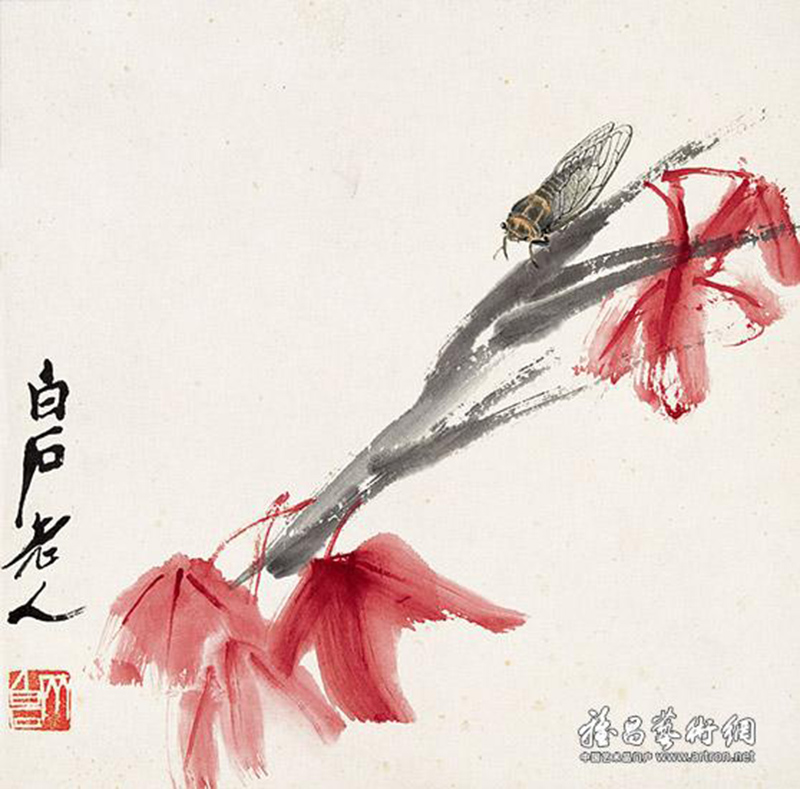 白石老人
雅昌藝術網
中国艺术品门户 www.artron.net